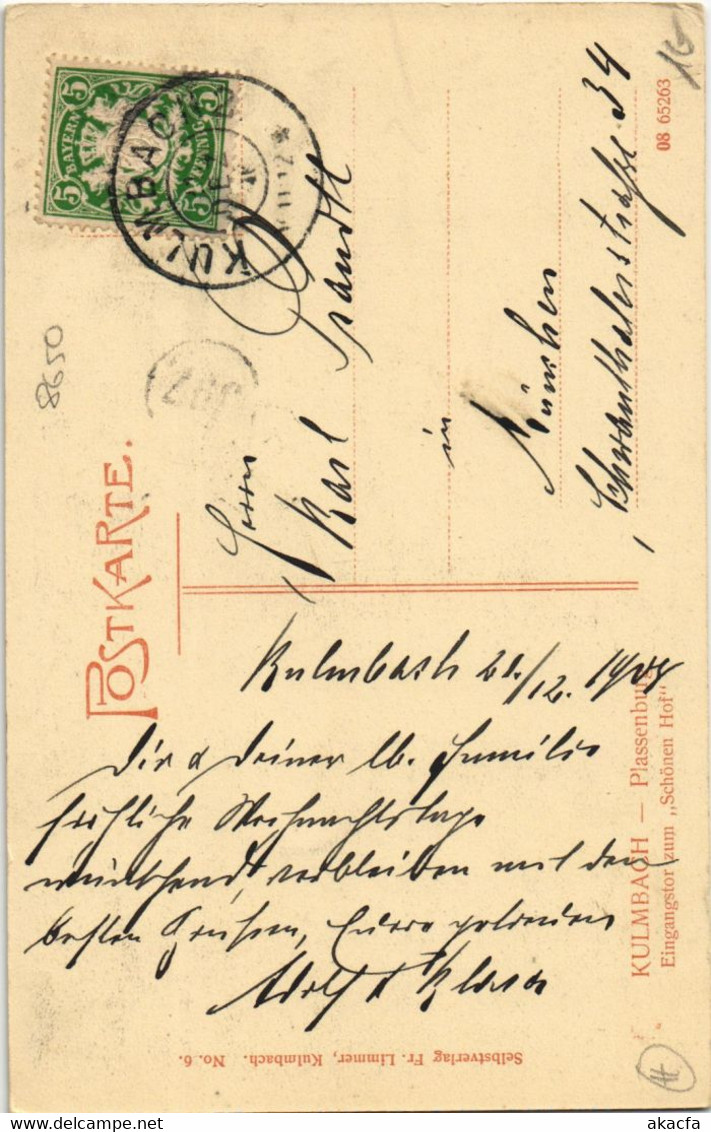 POSTKARTE.
BAYERN
5
5
5
KULMBACH
8650
16
Herrn
Karl Prandtl
in
München
Schwanthalerstraße 34
08 65263
Kulmbach 21/12. 1908
Dir & Deiner lb. Familie
fröhliche Weihnachtstage
wünschend, verbleiben mit den
besten Grüßen, Eure
Adolf & Klara
KULMBACH — Plassenburg
Eingangstor zum „Schönen Hof“
Selbstverlag Fr. Limmer, Kulmbach. No. 6.
www.delcampe.net
akacfa